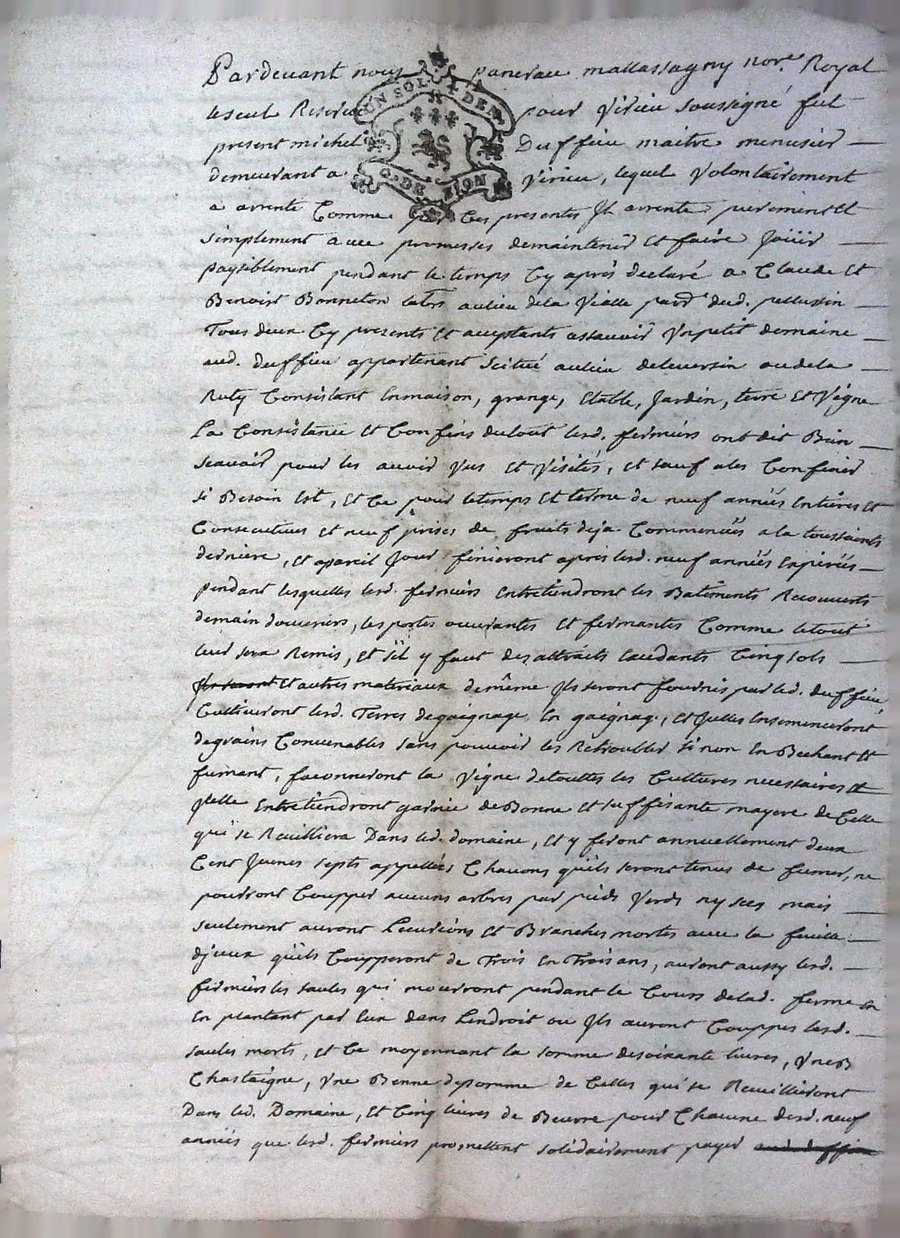 Pardevant nous pancrace mallassagny nore. Royal
le seul Reservé pour virieu soussigné fut
UN SOL 4 DEN
present michel Duffieu maitre menusier
demeurant a virieu, lequel volontairement
G. DE LION
a arrenté Comme par Ces presentes Il arrente purement et
simplement avec promesses demaintenir et faire Jouir
paysiblement pendant le temps Cy aprés declaré a Claude et
Benoist Bonneton aulieu dela vialle parr. dud. pellussin
Tous deux Cy presents et acceptants assavoir Vnpetit domaine
aud. duffieu appartenant Scitué aulieu deleversin oudela
Ruty Consistant Enmaison, grange, Etable, Jardin, terre et vigne
La Consistance et Confins dutout lesd. fermiers ont dit Bien
scavoir pour les avoir vus et visités, et sauf ales Confiner
si Besoin Est, et Ce pour letemps et terme de neuf années Entieres et
Consecutives et neuf prises de fruits deja Commencées a la toussaints
derniere, et apareil Jour finiront aprés lesd. neuf années Expirées
pendant lesquelles lesd. fermiers Entretiendront les Batiments Recouverts
demain douvriers, les portes ouvrantes et fermantes Comme letout
leur sera Remis, et s'il y faut des attraits Excedants Cinq sols
Ils seront et autres materiaux demême Ils seront fournis par led. duffieu
Cultiveront lesd. Terres degaignage En gaignage, et Jcelles Ensemenceront
degrains Convenables sans pouvoir les Retroubler si non En Bechant et
fumant, façonneront la vigne detouttes les Cultures necessaires et
Jcelle Entretiendront garnie de Bonne et suffisante mayere de Celle
qui se Reuilliera Dans led. domaine, et y feront annuellement deux
Cent Jeunes septs appellées Chavons qu'ils seront tenus de fumer, ne
pourront Coupper aucuns arbres par pieds verds ny secs mais
seulement auront Les et Branches mortes avec la feuille
djceux qu'ils Coupperont de Trois En Trois ans, auront aussy lesd.
fermiers les saules qui mourront pendant le Cours delad. ferme en
En plantant par Eux dans Lendroit ou Ils auront Couppes lesd.
saules morts, et Ce moyennant la somme desoixante livres, Vne
Chastaigne, Vne Benne depomme de Celles qui se Reuillieront
Dans led. Domaine, et Cinq livres de Beurre pour Chacune desd. neuf
années que lesd. fermiers promettent solidairement payer aud. duffieu